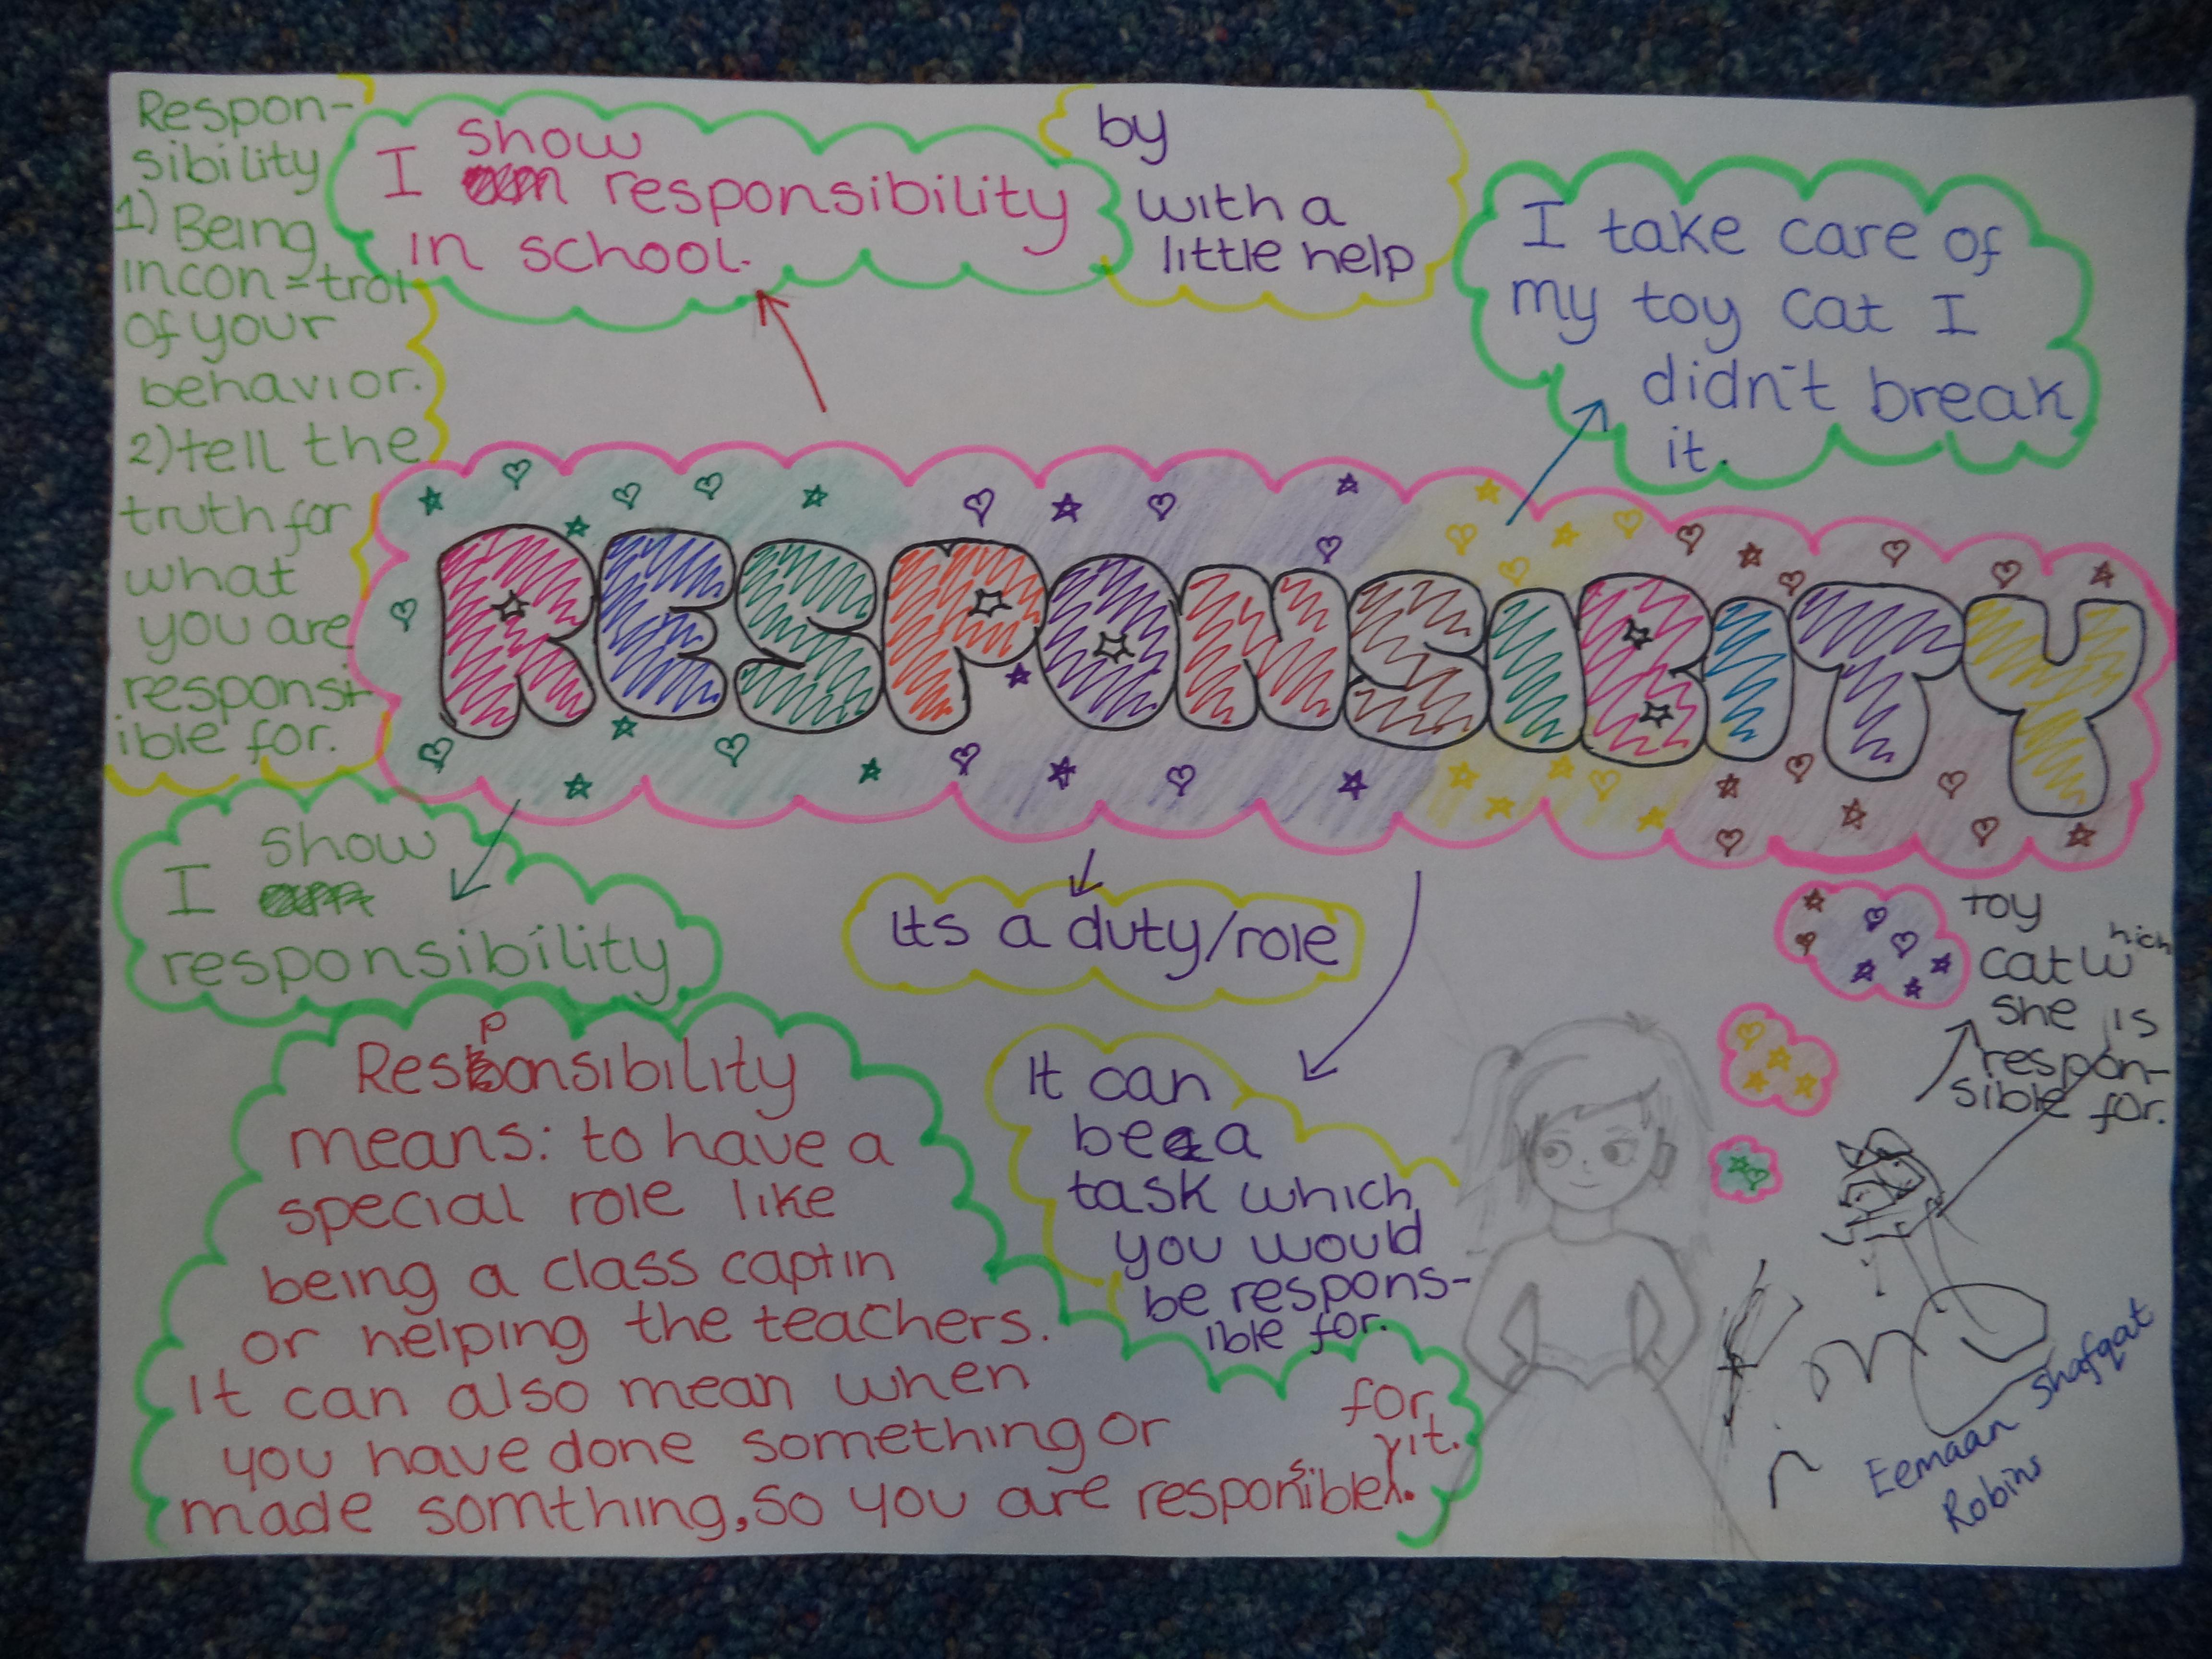 Respon-
sibility
1) Being
incon-trol
of your
behavior.
2) tell the
truth for
what
you are
respons-
ible for.
I show responsibility
in school.
by
with a
little help
I take care of
my toy cat I
didn't break
it.
RESPONSIBITY
I show
responsibility
Its a duty/role
Responsibility
means: to have a
special role like
being a class captin
or helping the teachers.
It can also mean when
you have done something or
made somthing, so you are responsible
for it.
It can
be a
task which
you would
be respons-
ible for.
toy
cat which
she is
respon-
sible for.
Eemaan Shafqat
Robins